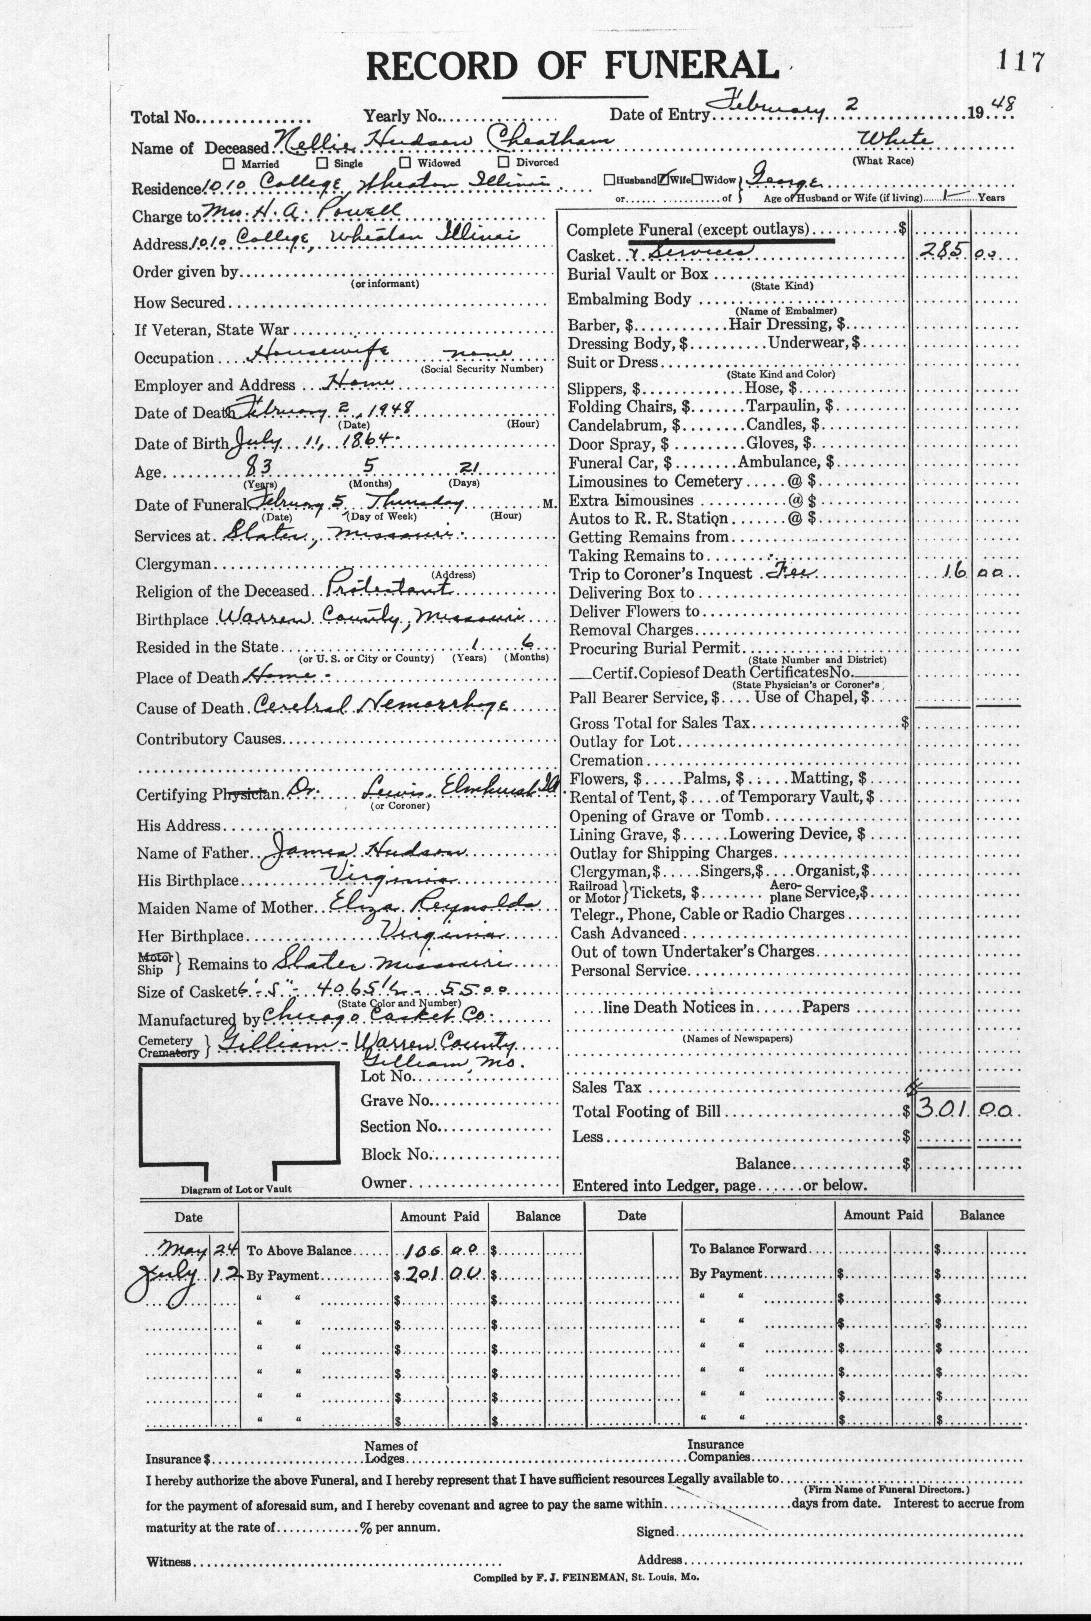 RECORD OF FUNERAL
117
Total No. Yearly No. Date of Entry February 2 1948
Name of Deceased Nellie Hudson Cheatham White
Married Single Widowed Divorced (What Race)
Residence 1010 College, Wheaton Illinois. Husband Wife Widow } George
or of } Age of Husband or Wife (if living) Years
Charge to Mrs. H. A. Powell
Address 1010 College, Wheaton Illinois
Order given by
(or informant)
How Secured
If Veteran, State War
Occupation Housewife none
(Social Security Number)
Employer and Address Home
Date of Death February 2, 1948
(Date) (Hour)
Date of Birth July 11, 1864.
Age 83 5 21
(Years) (Months) (Days)
Date of Funeral February 5 Thursday M.
(Date) (Day of Week) (Hour)
Services at Slater, Missouri.
Clergyman
(Address)
Religion of the Deceased Protestant
Birthplace Warren County, Missouri
Resided in the State 1 6
(or U. S. or City or County) (Years) (Months)
Place of Death Home.
Cause of Death Cerebral Hemorrhage
Contributory Causes
Certifying Physician Dr. Lewis. Elmhurst Ill.
(or Coroner)
His Address
Name of Father James Hudson
His Birthplace Virginia
Maiden Name of Mother Eliza Reynolds
Her Birthplace Virginia
Motor
Ship } Remains to Slater Missouri
Size of Casket 6'-5"- 4065½ - 5500
(State Color and Number)
Manufactured by Chicago Casket Co.
Cemetery
Crematory } Gilliam - Warren County
Gilliam, Mo.
Lot No.
Grave No.
Section No.
Block No.
Owner
Diagram of Lot or Vault
Complete Funeral (except outlays) $
Casket & Services 285 00
Burial Vault or Box
(State Kind)
Embalming Body
(Name of Embalmer)
Barber, $ Hair Dressing, $
Dressing Body, $ Underwear, $
Suit or Dress
(State Kind and Color)
Slippers, $ Hose, $
Folding Chairs, $ Tarpaulin, $
Candelabrum, $ Candles, $
Door Spray, $ Gloves, $
Funeral Car, $ Ambulance, $
Limousines to Cemetery @ $
Extra Limousines @ $
Autos to R. R. Station @ $
Getting Remains from
Taking Remains to
Trip to Coroner's Inquest Fee 16 00
Delivering Box to
Deliver Flowers to
Removal Charges
Procuring Burial Permit
(State Number and District)
Certif. Copies of Death Certificates No.
(State Physician's or Coroner's
Pall Bearer Service, $ Use of Chapel, $
Gross Total for Sales Tax $
Outlay for Lot
Cremation
Flowers, $ Palms, $ Matting, $
Rental of Tent, $ of Temporary Vault, $
Opening of Grave or Tomb
Lining Grave, $ Lowering Device, $
Outlay for Shipping Charges
Clergyman, $ Singers, $ Organist, $
Railroad
or Motor } Tickets, $ Aero-
plane Service, $
Telegr., Phone, Cable or Radio Charges
Cash Advanced
Out of town Undertaker's Charges
Personal Service
line Death Notices in Papers
(Names of Newspapers)
Sales Tax
Total Footing of Bill $ 301 00
Less $
Balance $
Entered into Ledger, page or below.
Date Amount Paid Balance Date Amount Paid Balance
May 24 To Above Balance 100 00 $ To Balance Forward $
July 12 By Payment $ 201 00 $ By Payment $ $
" " $ $ " " $ $
" " $ $ " " $ $
" " $ $ " " $ $
" " $ $ " " $ $
" " $ $ " " $ $
" " $ $ " " $ $
Insurance $ Names of
Lodges Insurance
Companies
I hereby authorize the above Funeral, and I hereby represent that I have sufficient resources Legally available to
(Firm Name of Funeral Directors.)
for the payment of aforesaid sum, and I hereby covenant and agree to pay the same within days from date. Interest to accrue from
maturity at the rate of % per annum.
Signed
Witness Address
Compiled by F. J. FEINEMAN, St. Louis, Mo.